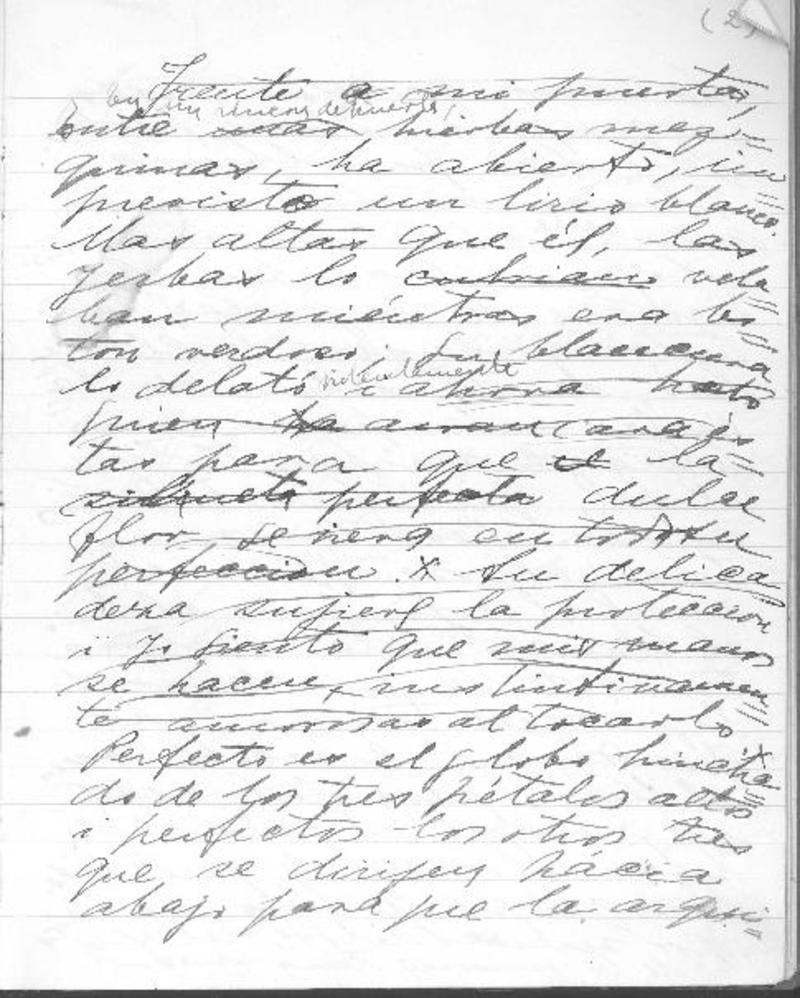 (2)
Frente a mi puerta,
en un rincon de huerta,
entre unas hierbas mez-
quinas, ha abierto, im
previsto un lirio blanco.
Mas altas que él, las
yerbas lo cubrian vela
ban miéntras era bo-
ton verdoso. Su blancura
lo delató i ahora
violentamente
quien
tas para que el la
silueta perfecta dulce
flor se viera en toda su
perfeccion. x Su delica
deza sujiere la proteccion
i yo siento que mis manos
se hacen, instintivamen
te amorosas al tocarlo x
Perfecto es el globo hincha
do de los tres pétalos altos
i perfectos los otros tres
que se dirijen hácia
abajo para que la arqui-